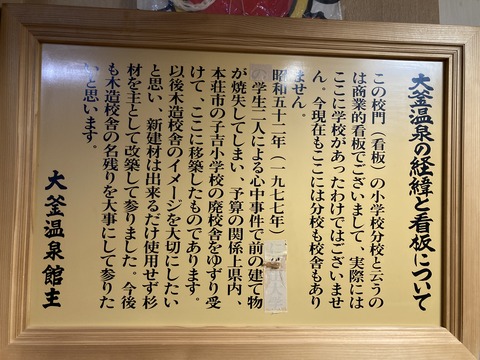 大釜温泉の経緯と看板について
この校門（看板）の小学校分校と云うの
は商業的看板でございまして、実際には
ここに学校があったわけではございませ
ん。今現在もここには分校も校舎もあり
ません。
昭和五十二年（一九七七年）
学生二人による心中事件で前の建て物
が焼失してしまい、予算の関係上県内、
本荘市の子吉小学校の廃校舎をゆずり受
けて、ここに移築したものであります。
以後木造校舎のイメージを大切にしたい
と思い、新建材は出来るだけ使用せず杉
材を主として改築して参りました。今後
も木造校舎の名残りを大事にして参りた
いと思います。
大釜温泉館主